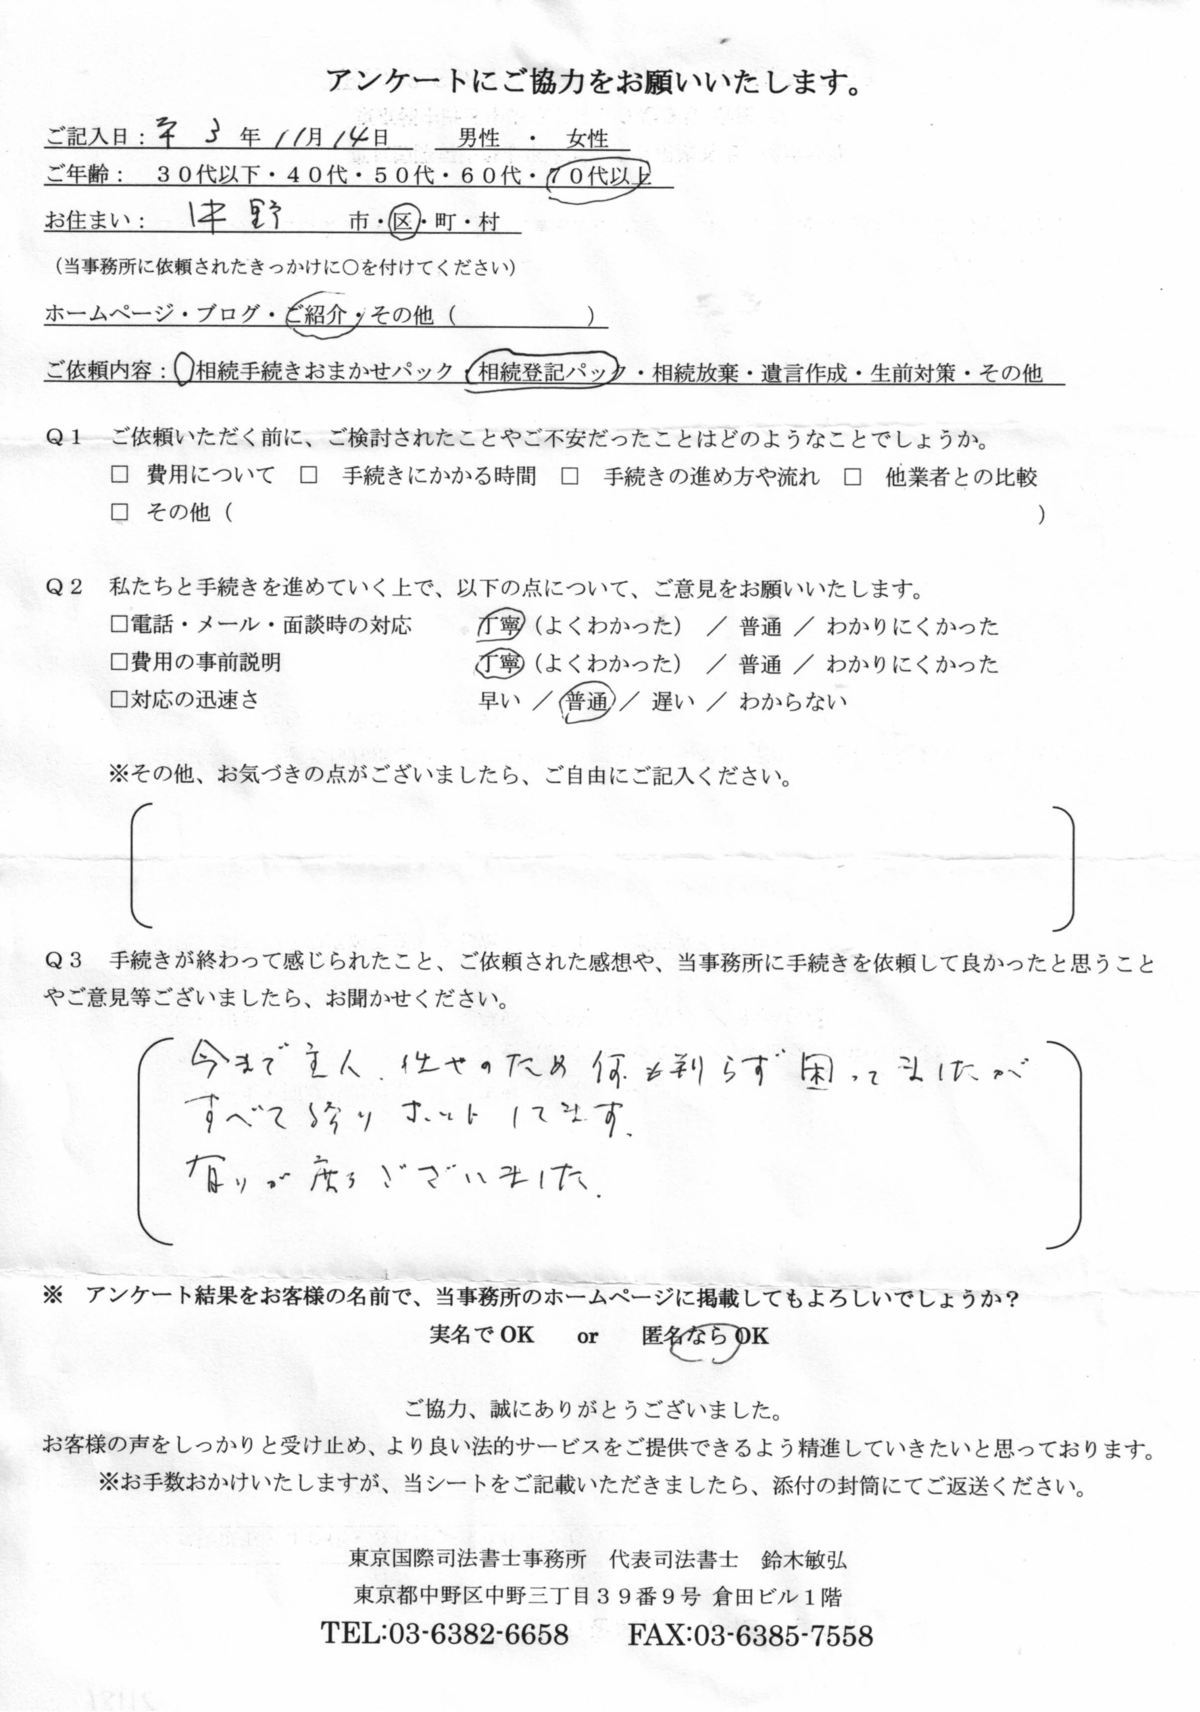 アンケートにご協力をお願いいたします。
ご記入日： 3 年 11月 14日 男性 ・ 女性
ご年齢： ３０代以下・４０代・５０代・６０代・７０代以上
お住まい： 中野 市・区・町・村
（当事務所に依頼されたきっかけに〇を付けてください）
ホームページ・ブログ・ご紹介・その他（ ）
ご依頼内容： 相続手続きおまかせパック・相続登記パック・相続放棄・遺言作成・生前対策・その他
Ｑ１ ご依頼いただく前に、ご検討されたことやご不安だったことはどのようなことでしょうか。
□ 費用について □ 手続きにかかる時間 □ 手続きの進め方や流れ □ 他業者との比較
□ その他（ ）
Ｑ２ 私たちと手続きを進めていく上で、以下の点について、ご意見をお願いいたします。
□電話・メール・面談時の対応 丁寧（よくわかった） ／ 普通 ／ わかりにくかった
□費用の事前説明 丁寧（よくわかった） ／ 普通 ／ わかりにくかった
□対応の迅速さ 早い ／ 普通 ／ 遅い ／ わからない
※その他、お気づきの点がございましたら、ご自由にご記入ください。
Ｑ３ 手続きが終わって感じられたこと、ご依頼された感想や、当事務所に手続きを依頼して良かったと思うこと
やご意見等ございましたら、お聞かせください。
今まで主人、任せのため何も判らず困ってましたが
すべて終りホットしてます.
有りが度うございました.
※ アンケート結果をお客様の名前で、当事務所のホームページに掲載してもよろしいでしょうか？
実名でOK or 匿名ならOK
ご協力、誠にありがとうございました。
お客様の声をしっかりと受け止め、より良い法的サービスをご提供できるよう精進していきたいと思っております。
※お手数おかけいたしますが、当シートをご記載いただきましたら、添付の封筒にてご返送ください。
東京国際司法書士事務所 代表司法書士 鈴木敏弘
東京都中野区中野三丁目３９番９号 倉田ビル１階
TEL:03-6382-6658 FAX:03-6385-7558